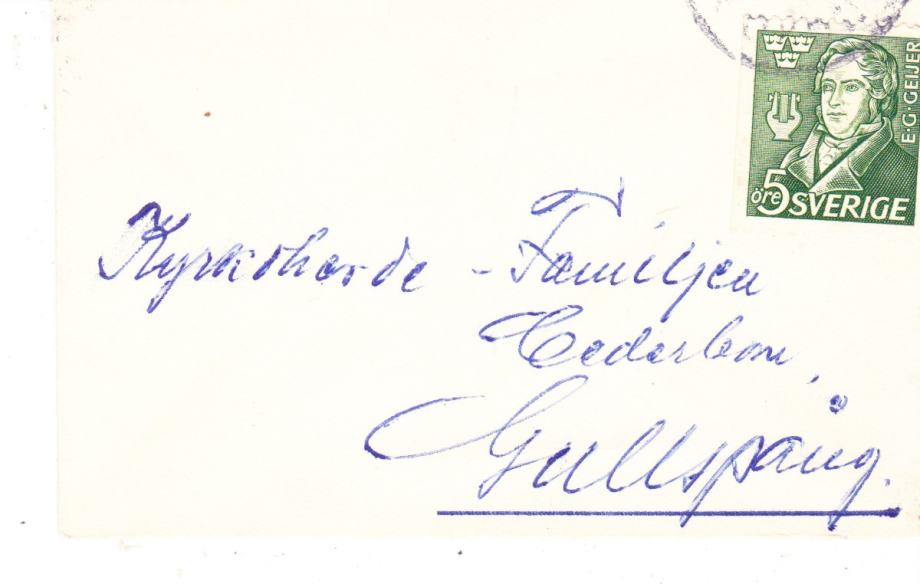 E·G·GEIJER
5 öre SVERIGE
Kyrkoherde - Familjen
Cederbom,
Gullspång.